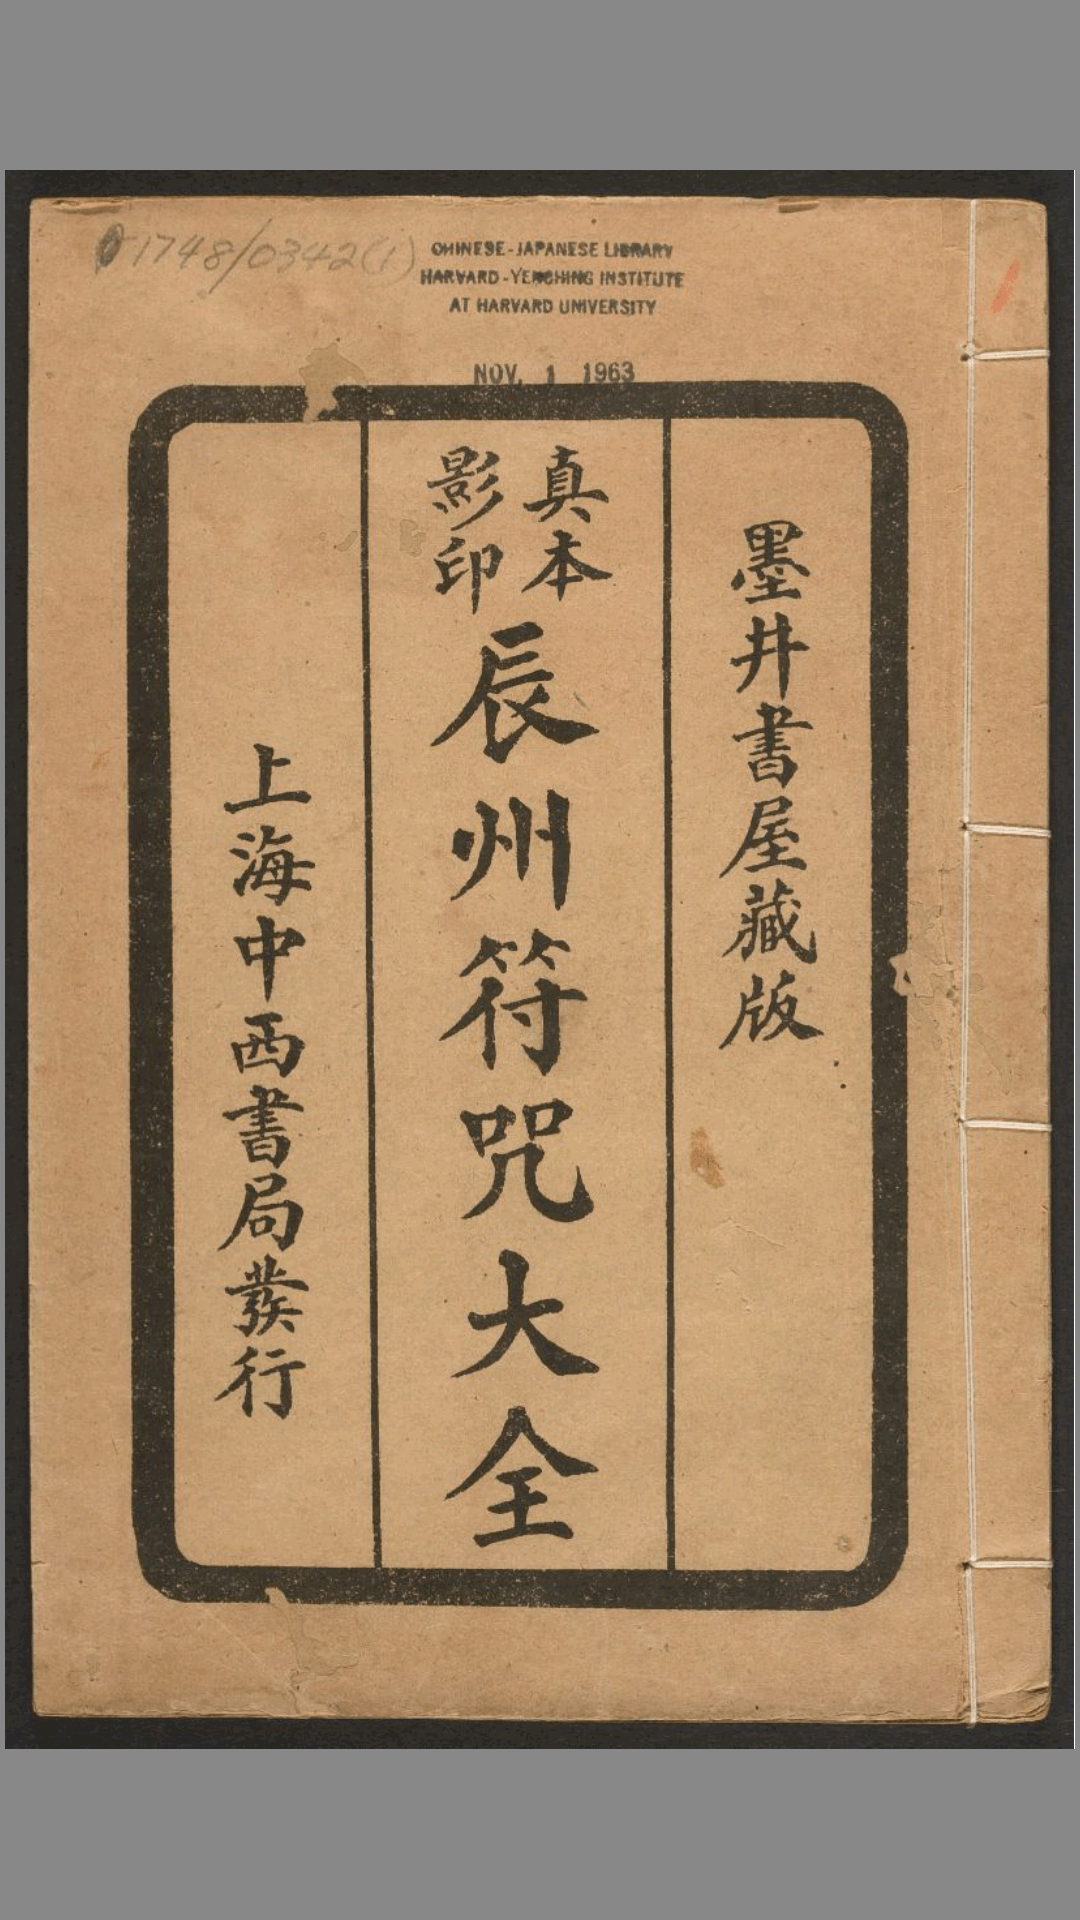 1748/0342(1)
CHINESE-JAPANESE LIBRARY
HARVARD-YENCHING INSTITUTE
AT HARVARD UNIVERSITY
NOV. 1 1963
墨井書屋藏版
真本
影印
辰州符咒大全
上海中西書局發行